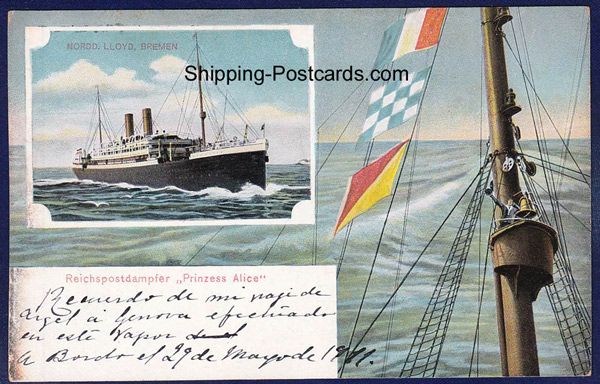 NORDD. LLOYD, BREMEN
Shipping-Postcards.com
Reichspostdampfer „Prinzess Alice"
Recuerdo de mi viaje de
Argel à Genova efectuado
en este vapor
A Bordo el 29 de Mayo de 1911.